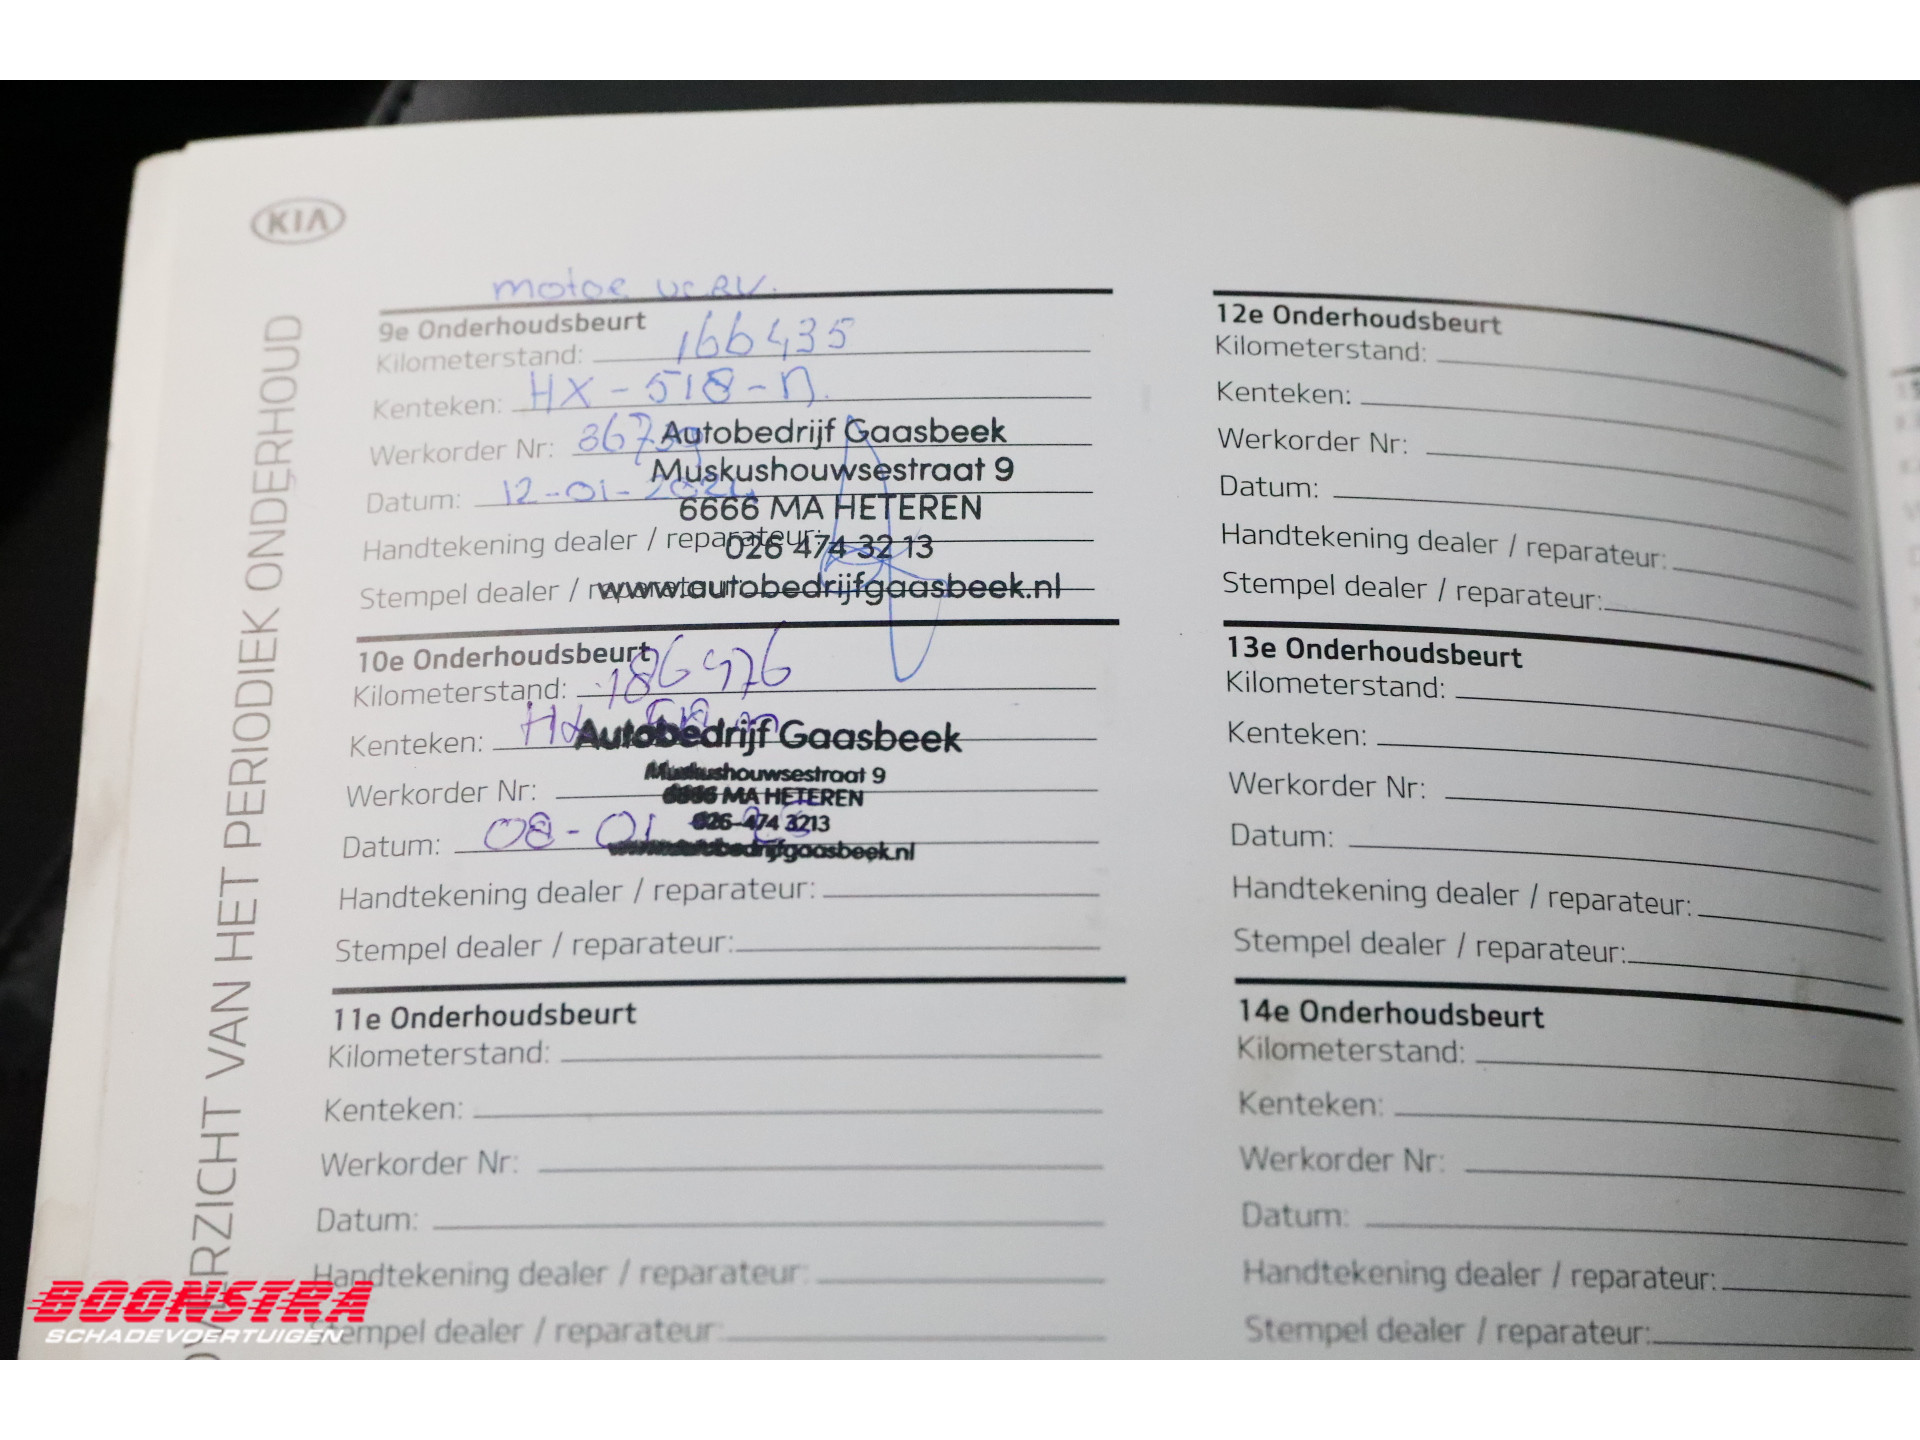 KIA
OVERZICHT VAN HET PERIODIEK ONDERHOUD
motor
9e Onderhoudsbeurt
Kilometerstand: 166435
Kenteken: HX-518-n.
Werkorder Nr: 36739
Datum: 12-01-2024
Handtekening dealer / reparateur:
Stempel dealer / reparateur:
Autobedrijf Gaasbeek
Muskushouwsestraat 9
6666 MA HETEREN
026 474 32 13
www.autobedrijfgaasbeek.nl
10e Onderhoudsbeurt
Kilometerstand: 186476
Kenteken: HX
Werkorder Nr:
Datum: 08-01
Handtekening dealer / reparateur:
Stempel dealer / reparateur:
Autobedrijf Gaasbeek
Muskushouwsestraat 9
6666 MA HETEREN
026-474 3213
www.autobedrijfgaasbeek.nl
11e Onderhoudsbeurt
Kilometerstand:
Kenteken:
Werkorder Nr:
Datum:
Handtekening dealer / reparateur:
Stempel dealer / reparateur:
12e Onderhoudsbeurt
Kilometerstand:
Kenteken:
Werkorder Nr:
Datum:
Handtekening dealer / reparateur:
Stempel dealer / reparateur:
13e Onderhoudsbeurt
Kilometerstand:
Kenteken:
Werkorder Nr:
Datum:
Handtekening dealer / reparateur:
Stempel dealer / reparateur:
14e Onderhoudsbeurt
Kilometerstand:
Kenteken:
Werkorder Nr:
Datum:
Handtekening dealer / reparateur:
Stempel dealer / reparateur:
BOONSTRA
SCHADEVOERTUIGEN